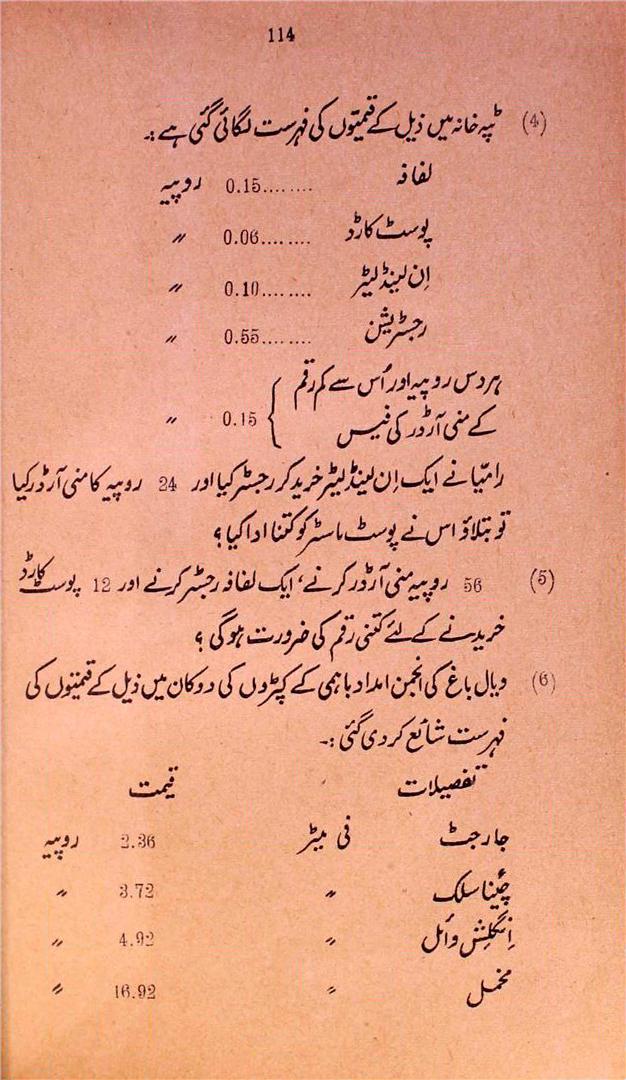 114
(4) ٹپہ خانہ میں ذیل کے قیمتوں کی فہرست لگائی گئی ہے :۔
لفافہ ........0.15 روپیہ
پوسٹ کارڈ ........0.06 〃
اِن لینڈ لیٹر ........0.10 〃
رجسٹریشن ........0.55 〃
ہر دس روپیہ اور اُس سے کم رقم
کے منی آرڈر کی فیس } 0.15 〃
رامیّا نے ایک اِن لینڈ لیٹر خرید کر رجسٹر کیا اور 24 روپیہ کا منی آرڈر کیا
تو بتلاؤ اس نے پوسٹ ماسٹر کو کتنا ادا کیا ؟
(5) 56 روپیہ منی آرڈر کرنے، ایک لفافہ رجسٹر کرنے اور 12 پوسٹ کارڈ
خریدنے کے لئے کتنی رقم کی ضرورت ہوگی ؟
(6) دیال باغ کی انجمن امداد باہمی کے کپڑوں کی دوکان میں ذیل کے قیمتوں کی
فہرست شائع کر دی گئی :۔
تفصیلات قیمت
جارجٹ فی میٹر 2.36 روپیہ
چَینا سلک 〃 3.72 〃
اِنگلِش وائل 〃 4.92 〃
مخمل 〃 16.92 〃